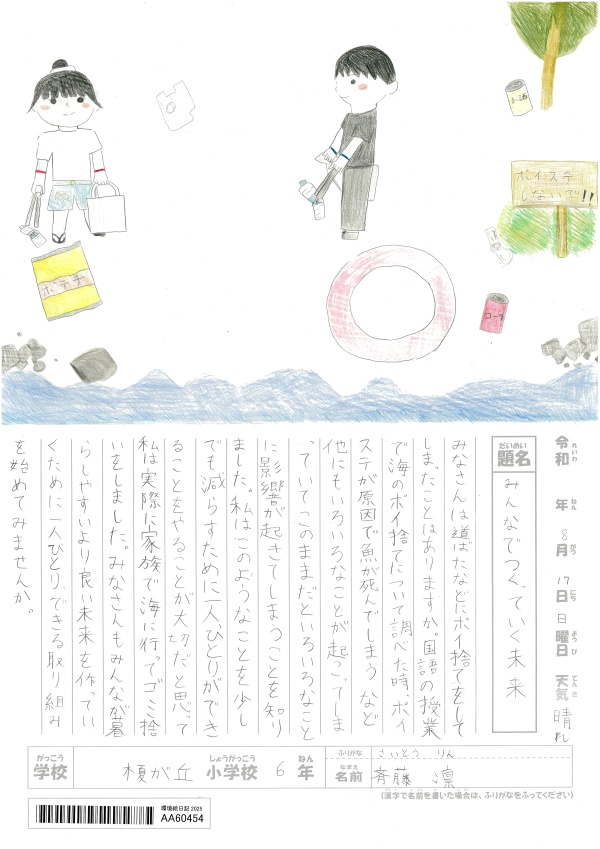 小酒
ポイステ
しないで!!
ポテチ
コーラ
令和 年 8月 17日 日曜日 天気 晴れ
れいわ ねん がつ にち ようび てんき
だいめい
題名
みんなでつくっていく未来
みなさんは道ばたなどにポイ捨てをして
しまったことはありますか。国語の授業
で海のポイ捨てについて調べた時、ポイ
ステが原因で魚が死んでしまうなど
他にもいろいろなことが起こってしま
っていてこのままだといろいろなこと
に影響が起きてしまうことを知り
ました。私はこのようなことを少し
でも減らすために一人ひとりができ
ることをやることが大切だと思って
私は実際に家族で海に行ってゴミ捨
いをしました。みなさんもみんなが暮
らしやすいより良い未来を作ってい
くために一人ひとりできる取り組み
を始めてみませんか。
がっこう しょうがっこう ねん
学校 榎が丘 小学校 6 年
ふりがな さいとう りん
なまえ
名前 斉藤 凛
(漢字で名前を書いた場合は、ふりがなをふってください)
環境絵日記 2025
AA60454